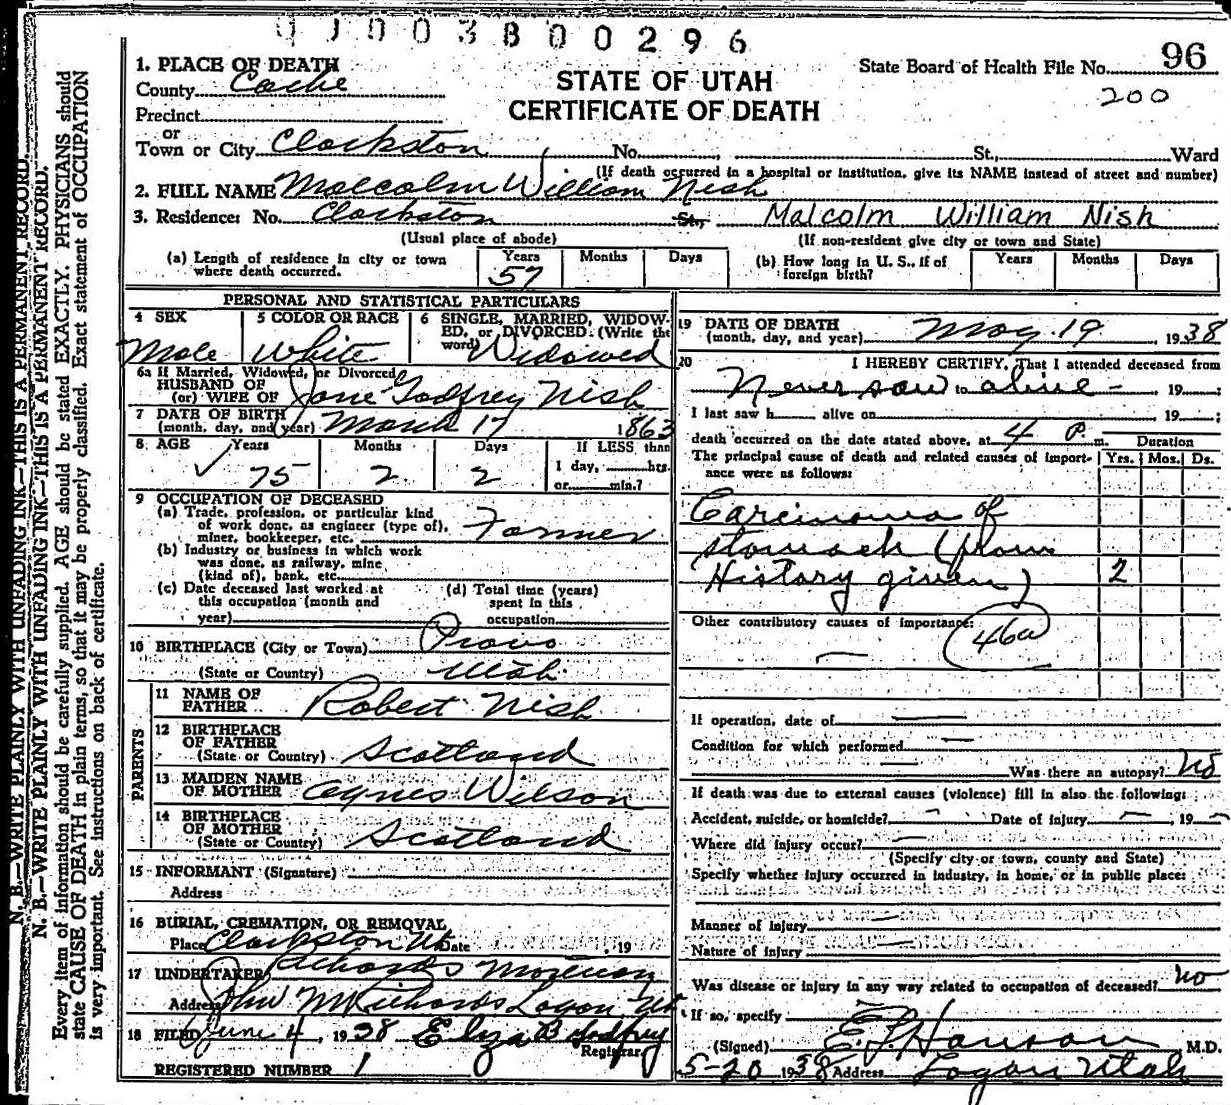 0 1 0 0 3 8 0 0 2 9 6
1. PLACE OF DEATH
County Cache
Precinct
or
Town or City Clarkston No. St., Ward
(If death occurred in a hospital or institution, give its NAME instead of street and number)
STATE OF UTAH
CERTIFICATE OF DEATH
State Board of Health File No. 96
200
2. FULL NAME Malcolm William Nish
3. Residence: No. Clarkston St., Malcolm William Nish
(Usual place of abode)
(If non-resident give city or town and State)
(a) Length of residence in city or town where death occurred. Years 57 Months Days
(b) How long in U. S., if of foreign birth? Years Months Days
PERSONAL AND STATISTICAL PARTICULARS
4 SEX Male
5 COLOR OR RACE White
6 SINGLE, MARRIED, WIDOWED, or DIVORCED: (Write the word) Widowed
6a If Married, Widowed, or Divorced
HUSBAND OF
(or) WIFE OF Jane Godfrey Nish
7 DATE OF BIRTH
(month, day, and year) March 17 1863
8 AGE Years 75 Months 2 Days 2 If LESS than
1 day, hrs.
or min.?
9 OCCUPATION OF DECEASED
(a) Trade, profession, or particular kind
of work done, as engineer (type of),
miner, bookkeeper, etc. Farmer
(b) Industry or business in which work
was done, as railway, mine
(kind of), bank, etc.
(c) Date deceased last worked at
this occupation (month and
year)
(d) Total time (years)
spent in this
occupation
10 BIRTHPLACE (City or Town) Provo
(State or Country) Utah
PARENTS
11 NAME OF
FATHER Robert Nish
12 BIRTHPLACE
OF FATHER
(State or Country) Scotland
13 MAIDEN NAME
OF MOTHER Agnes Wilson
14 BIRTHPLACE
OF MOTHER
(State or Country) Scotland
15 INFORMANT (Signature)
Address
16 BURIAL, CREMATION, OR REMOVAL
Place Clarkston Ut Date , 19
17 UNDERTAKER Richards Mortuary
Address John M Richards Logan, Ut
18 FILED June 4, 1938 Eliza B Godfrey
Registrar
REGISTERED NUMBER 1
19 DATE OF DEATH
(month, day, and year) May 19, 1938
20 I HEREBY CERTIFY, That I attended deceased from
Never saw to alive - 19
I last saw h alive on 19
death occurred on the date stated above, at 4 P. m.
The principal cause of death and related causes of importance were as follows:
Duration
Yrs. Mos. Ds.
Carcinoma of
stomach (from
History given) 2
Other contributory causes of importance:
46a
If operation, date of
Condition for which performed
Was there an autopsy? no
If death was due to external causes (violence) fill in also the following:
Accident, suicide, or homicide? Date of injury , 19
Where did injury occur?
(Specify city or town, county and State)
Specify whether injury occurred in industry, in home, or in public place:
Manner of injury
Nature of injury
Was disease or injury in any way related to occupation of deceased? no
If so, specify
(Signed) E. L. Hanson M.D.
5-20 1938 Address Logan Utah
N. B.—WRITE PLAINLY WITH UNFADING INK—THIS IS A PERMANENT RECORD.
N. B.—WRITE PLAINLY WITH UNFADING INK—THIS IS A PERMANENT RECORD.
Every item of information should be carefully supplied. AGE should be stated EXACTLY. PHYSICIANS should
state CAUSE OF DEATH in plain terms, so that it may be properly classified. Exact statement of OCCUPATION
is very important. See instructions on back of certificate.